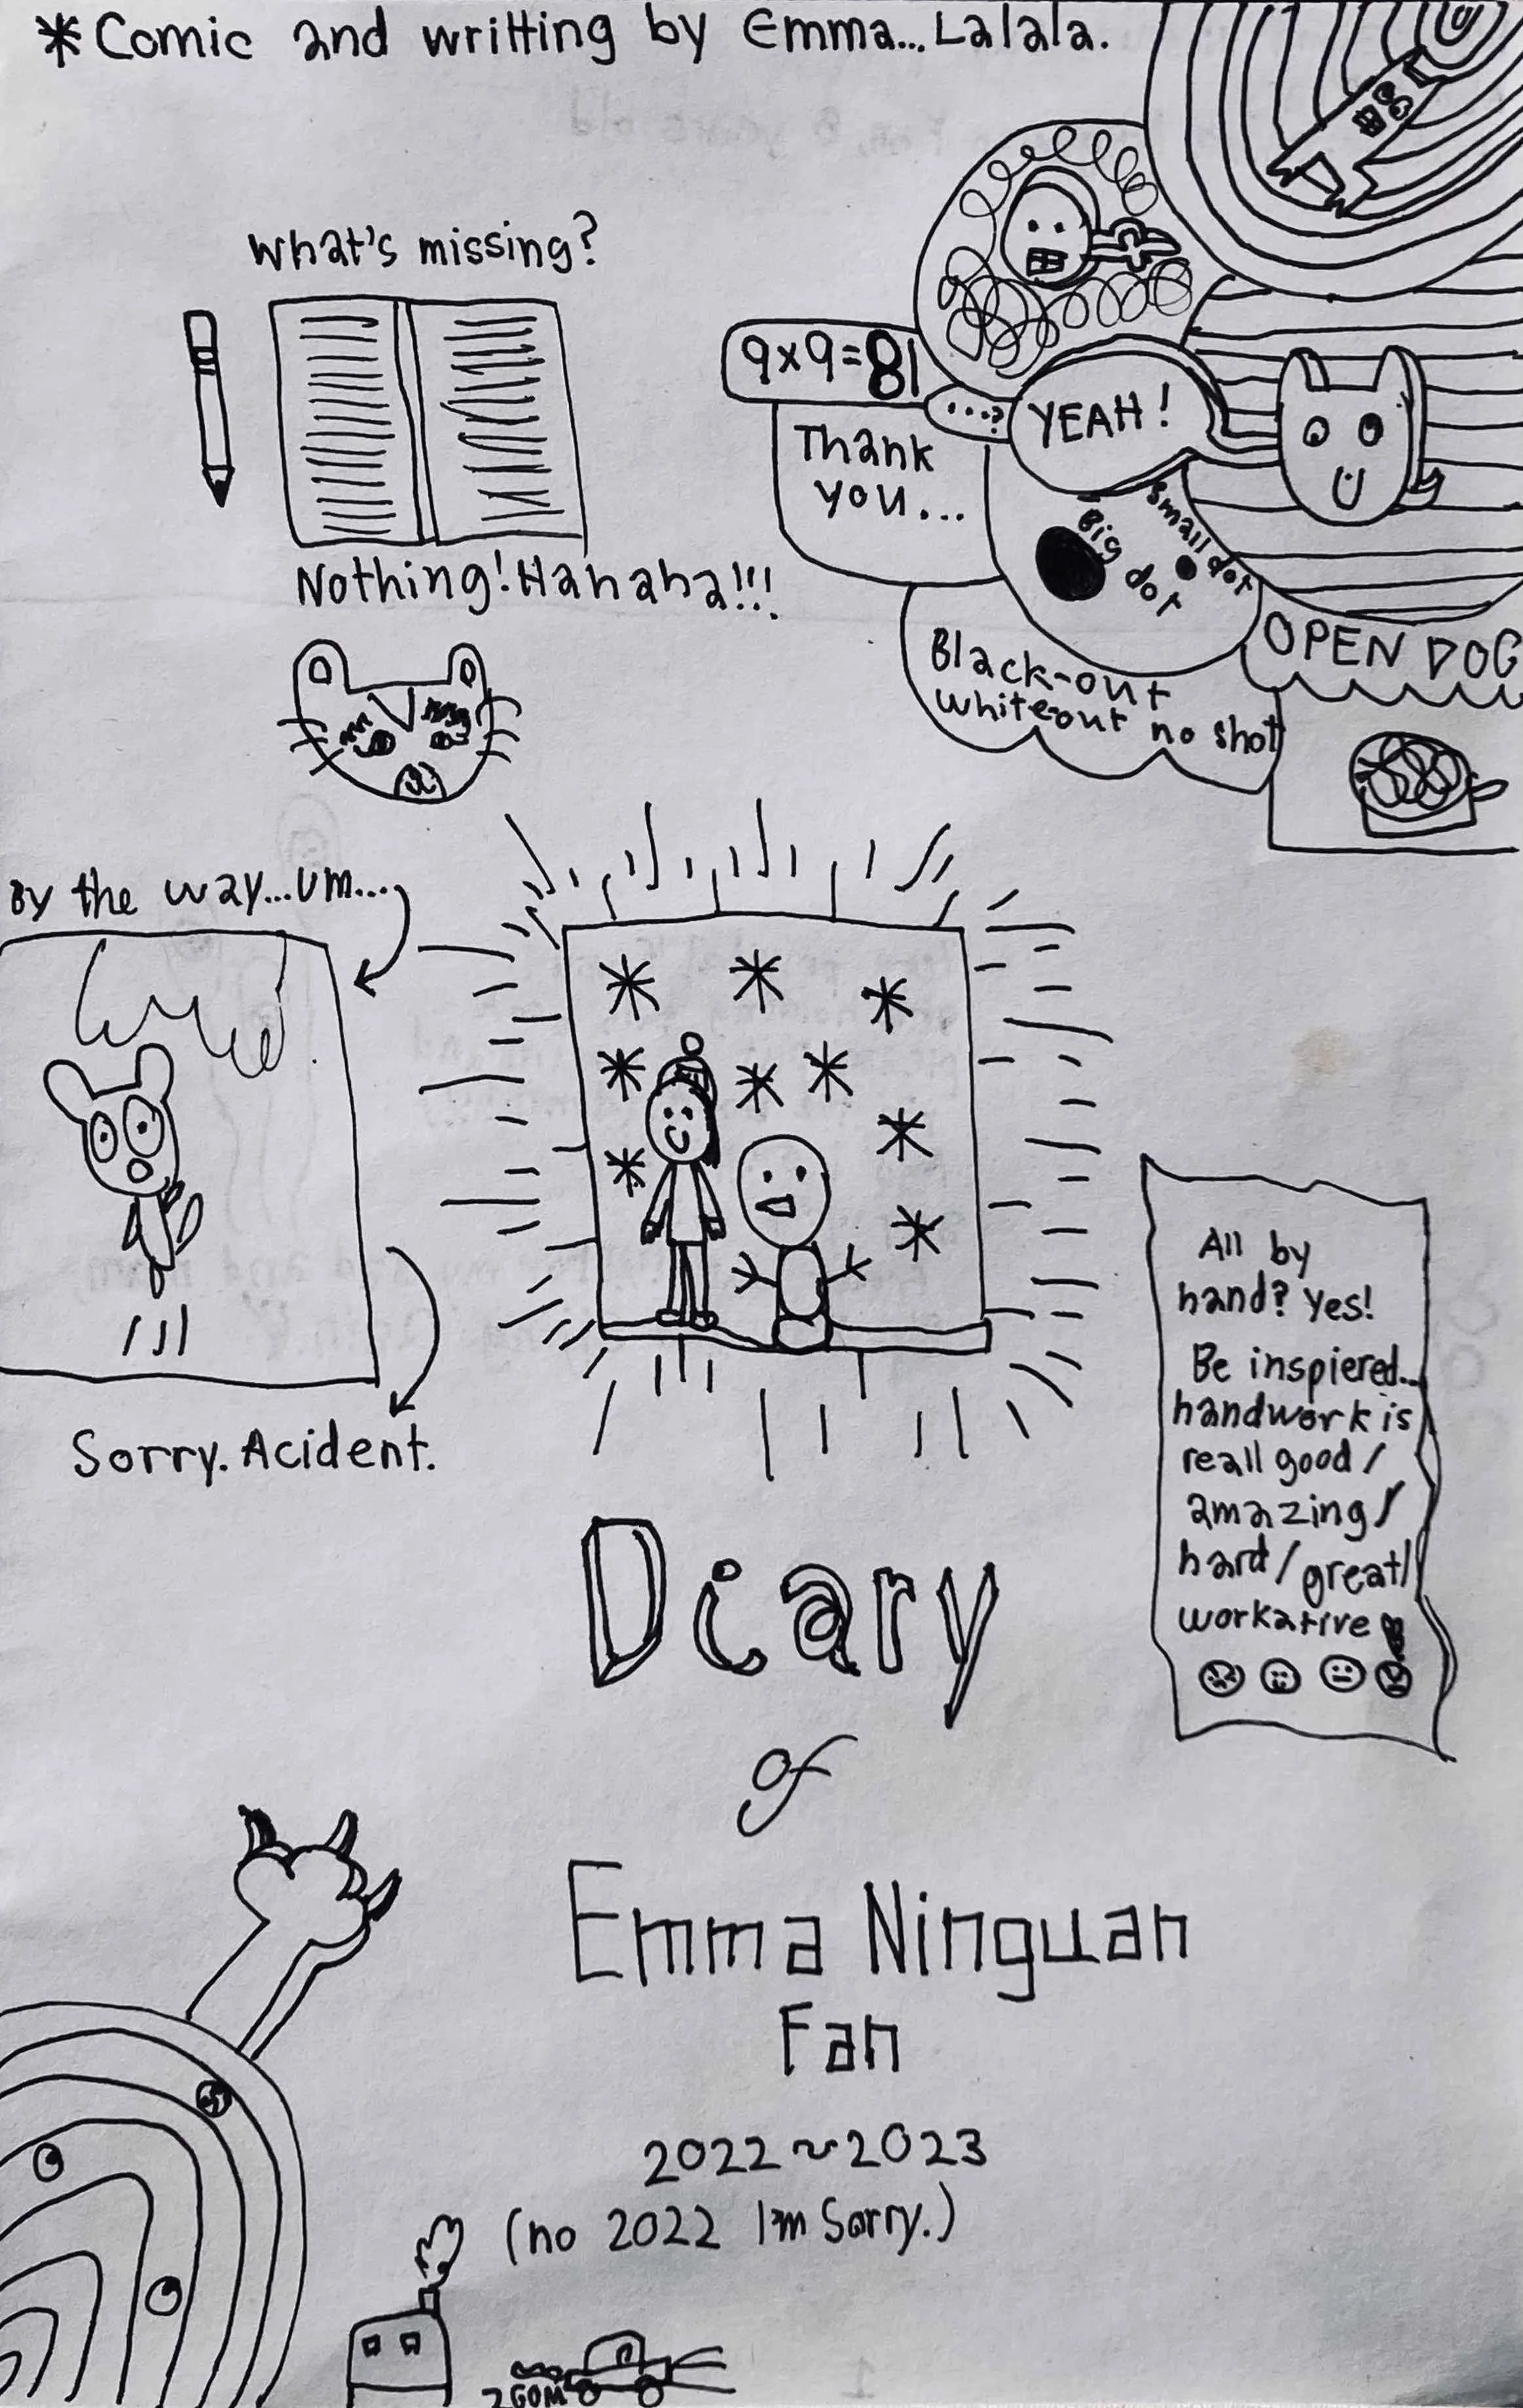 *Comic and writting by Emma...Lalala.
What's missing?
Nothing!Hahaha!!!
9x9=81
...?
YEAH!
Thank
you...
Big dot
Small dot
Black-out
whiteout no shot
OPEN DOG
By the way...um...
Sorry. Acident.
All by
hand? Yes!
Be inspiered...
handwork is
reall good/
amazing/
hard/great/
workative
Diary
of
Emma Ninguan
Fan
2022~2023
(no 2022 I'm Sorry.)